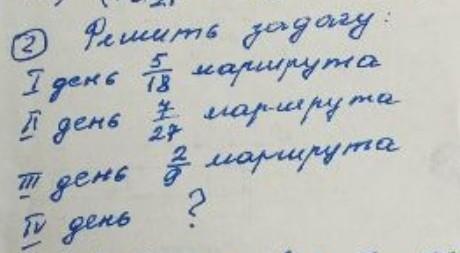 ② Решить задачу:
I день 5/18 маршрута
II день 7/27 маршрута
III день 2/9 маршрута
IV день ?